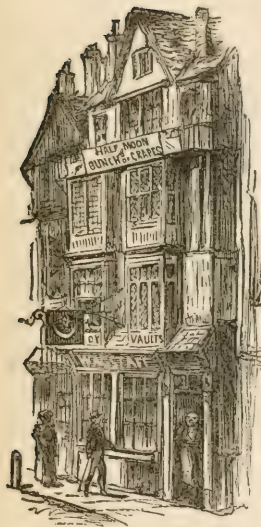 HALF MOON
BUNCH OF GRAPES
DY VAULTS